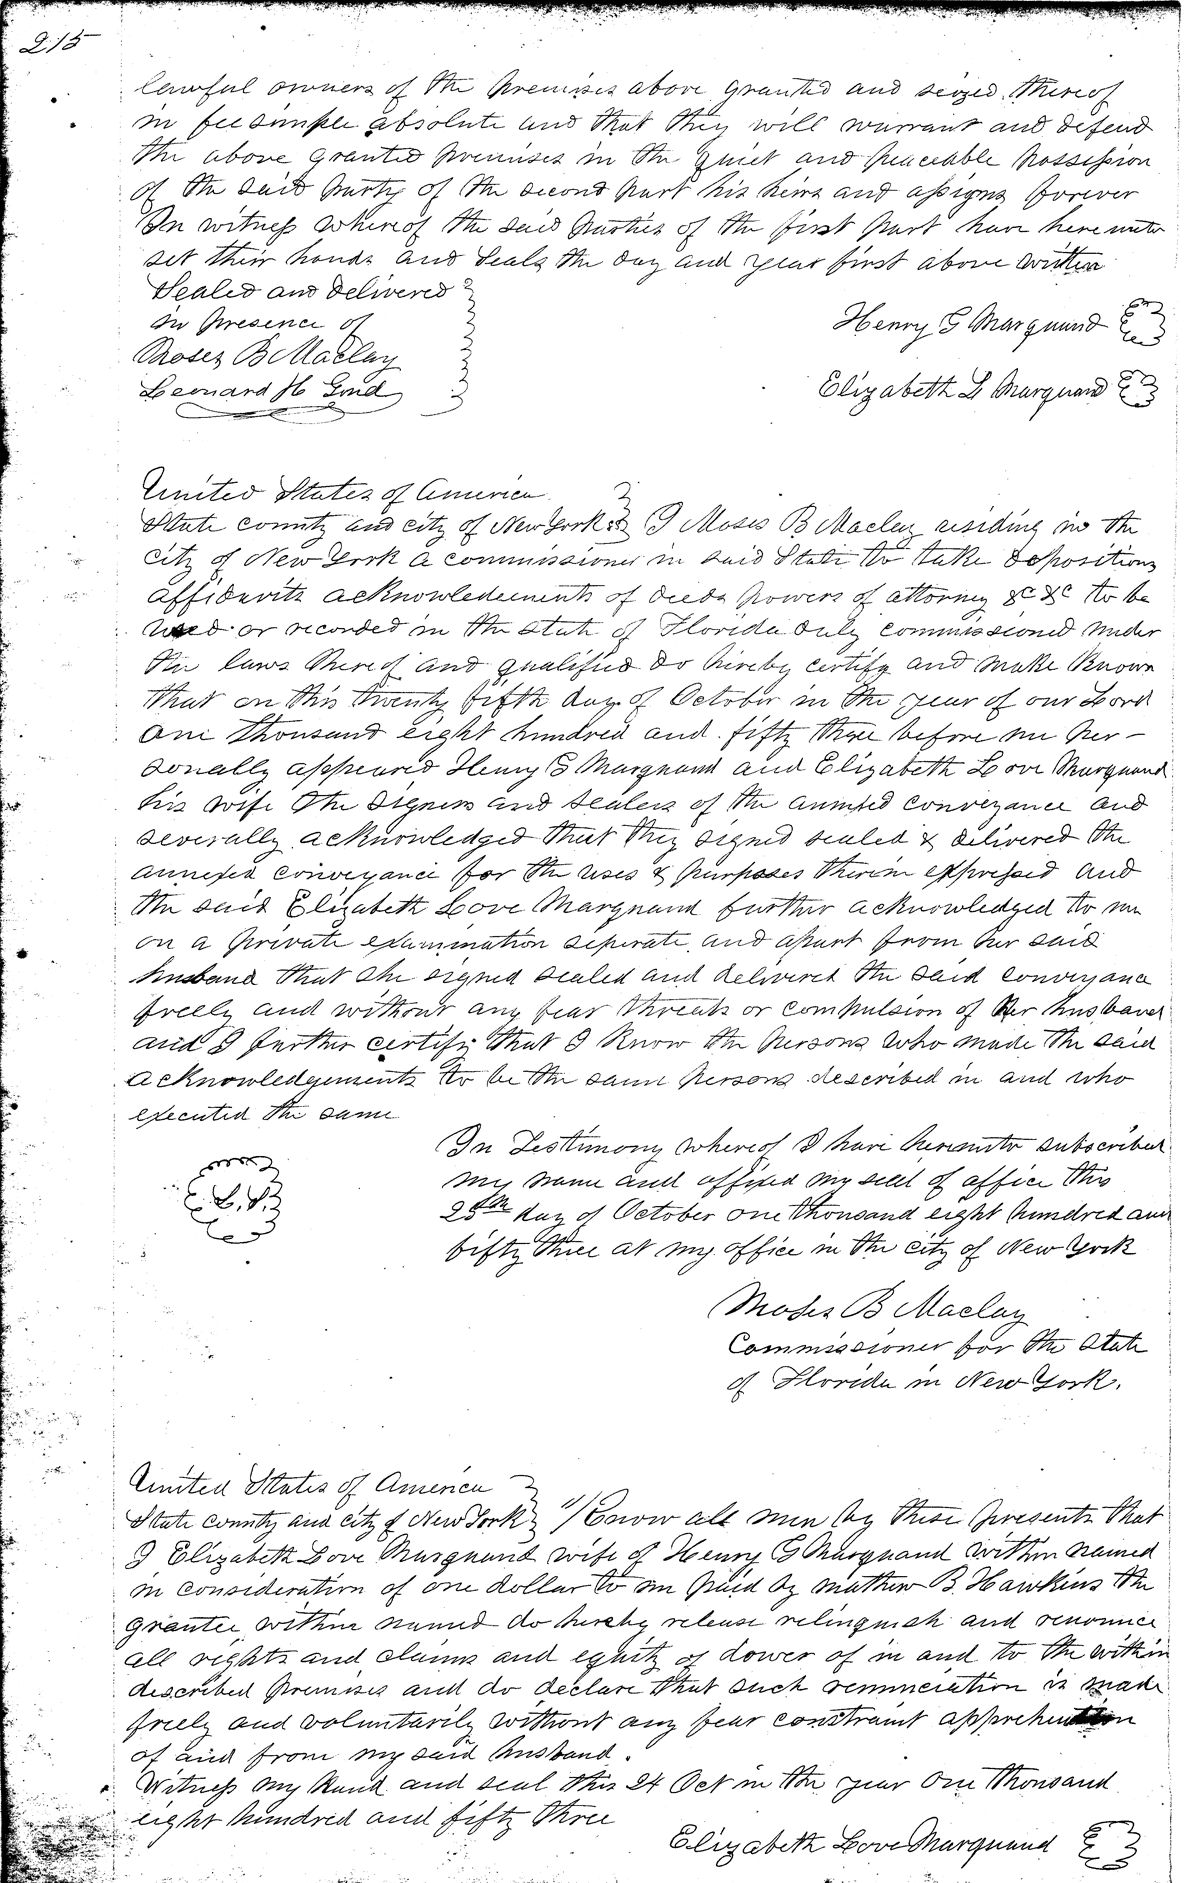 215
lawful owners of the premises above granted and seized thereof
in fee simple absolute and that they will warrant and defend
the above granted premises in the quiet and peaceable possession
of the said party of the second part his heirs and assigns forever
In witness whereof the said parties of the first part have hereunto
set their hands and seals the day and year first above written
Sealed and delivered
in presence of
Moses B Maclay
Leonard H
Henry G Marquand
Elizabeth L Marquand
United States of America
State county and city of New York ss I Moses B Maclay residing in the
city of New York a commissioner in said State to take depositions
affidavits acknowledgements of deeds powers of attorney &c &c to be
used or recorded in the state of Florida duly commissioned under
the laws thereof and qualified do hereby certify and make known
that on this twenty fifth day of October in the year of our Lord
one thousand eight hundred and fifty three before me per-
sonally appeared Henry G Marquand and Elizabeth Love Marquand
his wife the signers and sealers of the annexed conveyance and
severally acknowledged that they signed sealed & delivered the
annexed conveyance for the uses & purposes therein expressed and
the said Elizabeth Love Marquand further acknowledged to me
on a private examination seperate and apart from her said
husband that she signed sealed and delivered the said conveyance
freely and without any fear threats or compulsion of her husband
and I further certify that I know the persons who made the said
acknowledgements to be the same persons described in and who
executed the same
In Testimony whereof I have hereunto subscribed
my name and affixed my seal of office this
25th day of October one thousand eight hundred and
fifty three at my office in the city of New York
L.S.
Moses B Maclay
Commissioner for the State
of Florida in New York.
United States of America
State county and city of New York Know all men by these presents that
I Elizabeth Love Marquand wife of Henry G Marquand within named
in consideration of one dollar to me paid by Mathew B. Hawkins the
grantee within named do hereby release relinquish and renounce
all rights and claims and equity of dower of in and to the within
described premises and do declare that such renunciation is made
freely and voluntarily without any fear constraint apprehention
of and from my said husband.
Witness my hand and seal this 24 Oct in the year One thousand
eight hundred and fifty three
Elizabeth Love Marquand